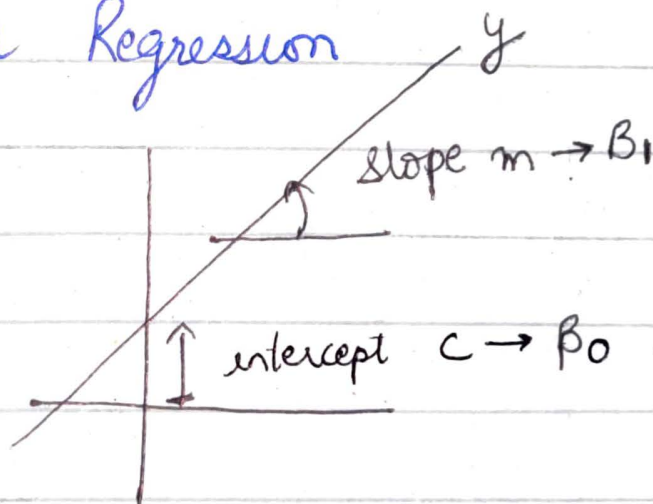 Regression
y
slope m → β1
intercept c → β0